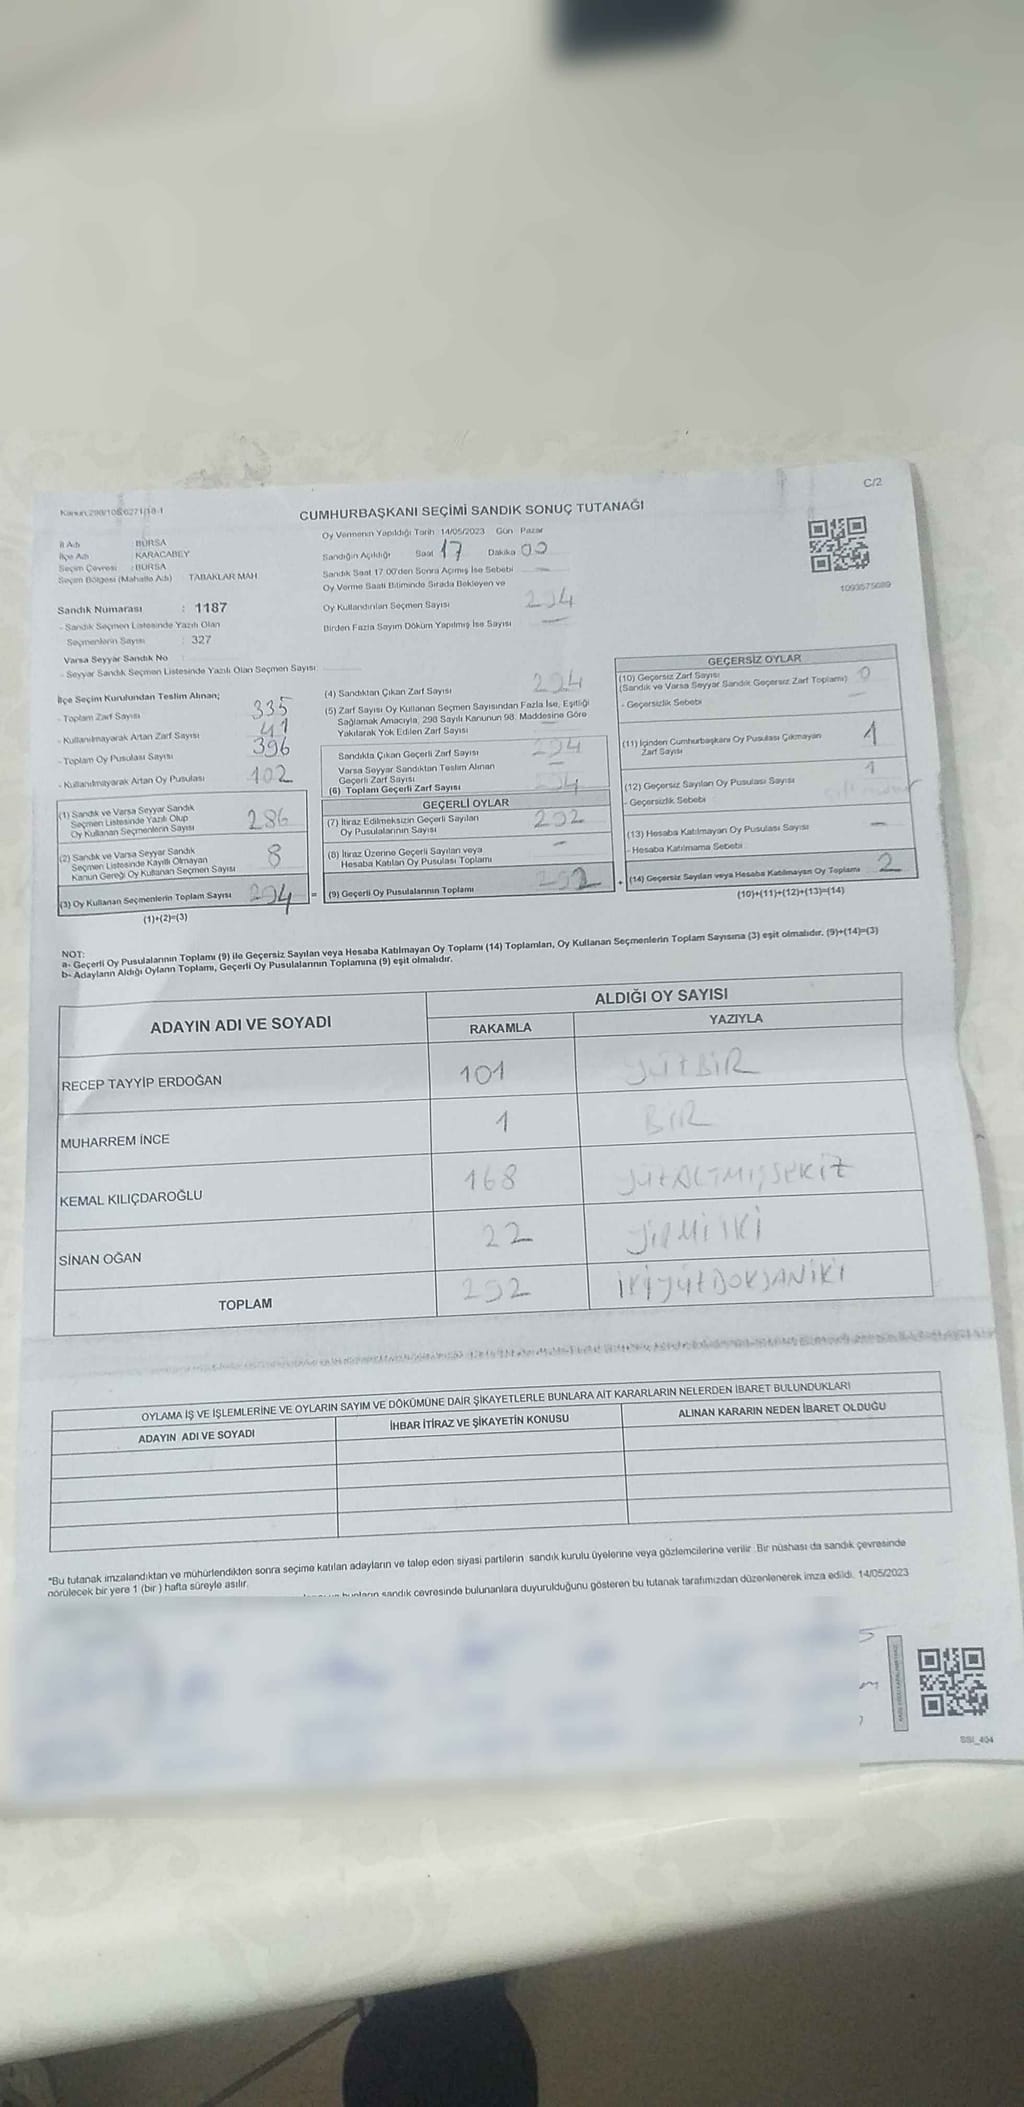 C/2
Kanun:298/105&6271/18-1
CUMHURBAŞKANI SEÇİMİ SANDIK SONUÇ TUTANAĞI
İl Adı : BURSA
İlçe Adı : KARACABEY
Seçim Çevresi : BURSA
Seçim Bölgesi (Mahalle Adı) TABAKLAR MAH
Sandık Numarası : 1187
- Sandık Seçmen Listesinde Yazılı Olan
Seçmenlerin Sayısı 327
Varsa Seyyar Sandık No
- Seyyar Sandık Seçmen Listesinde Yazılı Olan Seçmen Sayısı:
Oy Vermenin Yapıldığı Tarih 14/05/2023 Gün Pazar
Sandığın Açıldığı Saat 17 Dakika 00
Sandık Saat 17.00'den Sonra Açılmış İse Sebebi
Oy Verme Saati Bitiminde Sırada Bekleyen ve
Oy Kullandırılan Seçmen Sayısı 294
Birden Fazla Sayım Döküm Yapılmış İse Sayısı —
1093575689
İlçe Seçim Kurulundan Teslim Alınan;
- Toplam Zarf Sayısı 335
- Kullanılmayarak Artan Zarf Sayısı 41
- Toplam Oy Pusulası Sayısı 396
- Kullanılmayarak Artan Oy Pusulası 102
(1) Sandık ve Varsa Seyyar Sandık
Seçmen Listesinde Yazılı Olup
Oy Kullanan Seçmenlerin Sayısı 286
(2) Sandık ve Varsa Seyyar Sandık
Seçmen Listesinde Kayıtlı Olmayan
Kanun Gereği Oy Kullanan Seçmen Sayısı 8
(3) Oy Kullanan Seçmenlerin Toplam Sayısı 294
(1)+(2)=(3)
(4) Sandıktan Çıkan Zarf Sayısı 294
(5) Zarf Sayısı Oy Kullanan Seçmen Sayısından Fazla İse, Eşitliği
Sağlamak Amacıyla, 298 Sayılı Kanunun 98. Maddesine Göre
Yakılarak Yok Edilen Zarf Sayısı —
Sandıkta Çıkan Geçerli Zarf Sayısı 294
Varsa Seyyar Sandıktan Teslim Alınan
Geçerli Zarf Sayısı —
(6) Toplam Geçerli Zarf Sayısı 294
GEÇERLİ OYLAR
(7) İtiraz Edilmeksizin Geçerli Sayılan
Oy Pusulalarının Sayısı 292
(8) İtiraz Üzerine Geçerli Sayılan veya
Hesaba Katılan Oy Pusulası Toplamı —
= (9) Geçerli Oy Pusulalarının Toplamı 292
GEÇERSİZ OYLAR
(10) Geçersiz Zarf Sayısı
(Sandık ve Varsa Seyyar Sandık Geçersiz Zarf Toplamı) 0
- Geçersizlik Sebebi —
(11) İçinden Cumhurbaşkanı Oy Pusulası Çıkmayan
Zarf Sayısı 1
(12) Geçersiz Sayılan Oy Pusulası Sayısı 1
- Geçersizlik Sebebi
(13) Hesaba Katılmayan Oy Pusulası Sayısı —
- Hesaba Katılmama Sebebi
+ (14) Geçersiz Sayılan veya Hesaba Katılmayan Oy Toplamı 2
(10)+(11)+(12)+(13)=(14)
NOT:
a- Geçerli Oy Pusulalarının Toplamı (9) ile Geçersiz Sayılan veya Hesaba Katılmayan Oy Toplamı (14) Toplamları, Oy Kullanan Seçmenlerin Toplam Sayısına (3) eşit olmalıdır. (9)+(14)=(3)
b- Adayların Aldığı Oyların Toplamı, Geçerli Oy Pusulalarının Toplamına (9) eşit olmalıdır.
ADAYIN ADI VE SOYADI
ALDIĞI OY SAYISI
RAKAMLA YAZIYLA
RECEP TAYYİP ERDOĞAN 101 YÜZBİR
MUHARREM İNCE 1 BİR
KEMAL KILIÇDAROĞLU 168 YÜZALTMIŞSEKİZ
SİNAN OĞAN 22 YİRMİİKİ
TOPLAM 292 İKİYÜZDOKSANİKİ
OYLAMA İŞ VE İŞLEMLERİNE VE OYLARIN SAYIM VE DÖKÜMÜNE DAİR ŞİKAYETLERLE BUNLARA AİT KARARLARIN NELERDEN İBARET BULUNDUKLARI
ADAYIN ADI VE SOYADI İHBAR İTİRAZ VE ŞİKAYETİN KONUSU ALINAN KARARIN NEDEN İBARET OLDUĞU
*Bu tutanak imzalandıktan ve mühürlendikten sonra seçime katılan adayların ve talep eden siyasi partilerin sandık kurulu üyelerine veya gözlemcilerine verilir. Bir nüshası da sandık çevresinde
görülecek bir yere 1 (bir) hafta süreyle asılır.
bunların sandık çevresinde bulunanlara duyurulduğunu gösteren bu tutanak tarafımızdan düzenlenerek imza edildi. 14/05/2023
SSI_404